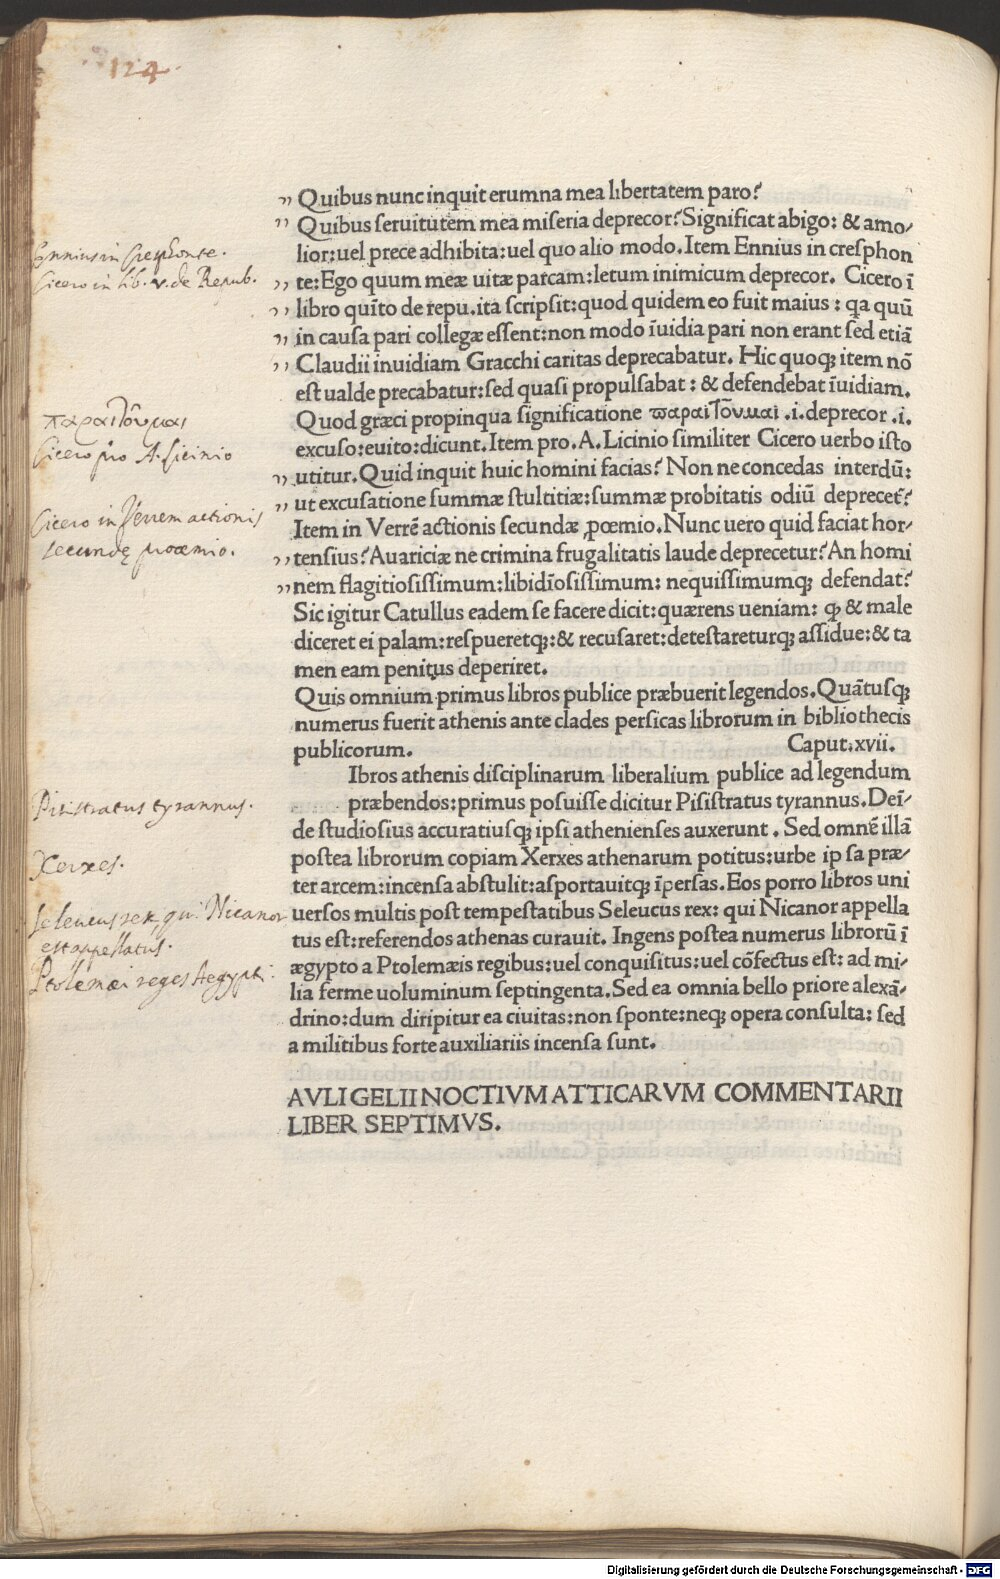 124.
„ Quibus nunc inquit erumna mea libertatem paro?
„ Quibus ſeruitutem mea miſeria deprecor? Significat abigo: & amo-
lior: uel prece adhibita: uel quo alio modo. Item Ennius in creſphon
„ te: Ego quum meæ uitæ parcam: letum inimicum deprecor. Cicero ī
„ libro quīto de repu. ita ſcripſit: quod quidem eo fuit maius: qa quū
„ in cauſa pari collegæ eſſent: non modo īuidia pari non erant ſed etiā
„ Claudii inuidiam Gracchi caritas deprecabatur. Hic quoqꝫ item nō
eſt ualde precabatur: ſed quaſi propulſabat: & defendebat īuidiam.
Quod græci propinqua ſignificatione ϖαραιτο͂υμαι .i. deprecor .i.
excuſo: euito: dicunt. Item pro. A. Licinio ſimiliter Cicero uerbo iſto
„ utitur. Quid inquit huic homini facias? Non ne concedas interdū:
„ ut excuſatione ſummæ ſtultitiæ: ſummæ probitatis odiū deprecet̄?
Item in Verrē actionis ſecundæ ꝓœmio. Nunc uero quid faciat hor-
„ tenſius? Auariciæ ne crimina frugalitatis laude deprecetur? An homi
„ nem flagitioſiſſimum: libidīoſiſſimum: nequiſſimumqꝫ defendat?
Sic igitur Catullus eadem ſe facere dicit: quærens ueniam: ꝙ & male
diceret ei palam: reſpueretqꝫ: & recuſaret: deteſtareturqꝫ aſſidue: & ta
men eam penitus deperiret.
Quis omnium primus libros publice præbuerit legendos. Quātuſqꝫ
numerus fuerit athenis ante clades perſicas librorum in bibliothecis
publicorum. Caput. xvii.
Ibros athenis diſciplinarum liberalium publice ad legendum
præbendos: primus poſuiſſe dicitur Piſiſtratus tyrannus. Deī-
de ſtudioſius accuratiuſqꝫ ipſi athenienſes auxerunt. Sed omnē illā
poſtea librorum copiam Xerxes athenarum potitus: urbe ipſa præ-
ter arcem: incenſa abſtulit: aſportauitqꝫ ī perſas. Eos porro libros uni
uerſos multis poſt tempeſtatibus Seleucus rex: qui Nicanor appella
tus eſt: referendos athenas curauit. Ingens poſtea numerus librorū ī
ægypto a Ptolemæis regibus: uel conquiſitus: uel cōfectus eſt: ad mi-
lia ferme uoluminum ſeptingenta. Sed ea omnia bello priore alexā-
drino: dum diripitur ea ciuitas: non ſponte: neqꝫ opera conſulta: ſed
a militibus forte auxiliariis incenſa ſunt.
AVLI GELII NOCTIVM ATTICARVM COMMENTARII
LIBER SEPTIMVS.
Ennius in Cresphonte.
Cicero in lib. v. de Repub.
παραιτο͂υμαι
Cicero pro A. Licinio
Cicero in Verrem actionis
secundę proœmio.
Pisistratus tyrannus.
Xerxes.
Seleucus rex qui Nicanor
est appellatus.
Ptolemæi reges Aegypti.
Digitalisierung gefördert durch die Deutsche Forschungsgemeinschaft - DFG